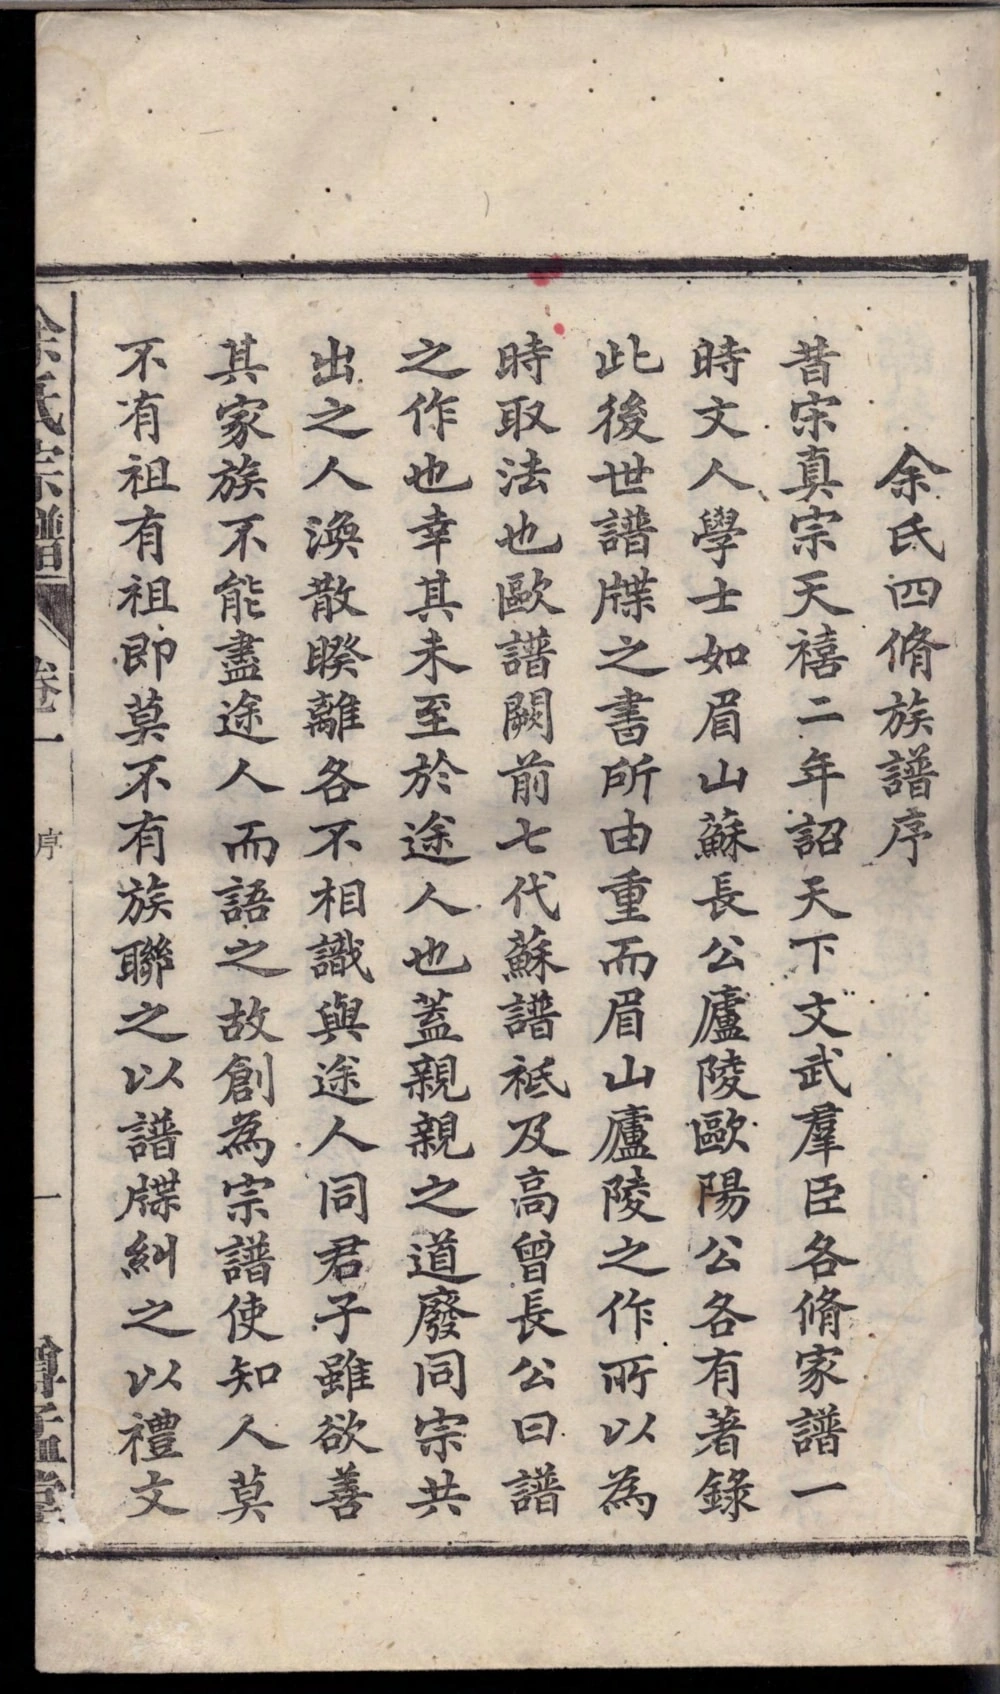 余氏四脩族譜序
昔宋真宗天禧二年詔天下文武羣臣各脩家譜一
時文人學士如眉山蘇長公廬陵歐陽公各有著錄
此後世譜牒之書所由重而眉山廬陵之作所以為
時取法也歐譜闕前七代蘇譜祇及高曾長公曰譜
之作也幸其未至於途人也蓋親親之道廢同宗共
出之人渙散睽離各不相識與途人同君子雖欲善
其家族不能盡途人而語之故創為宗譜使知人莫
不有祖有祖即莫不有族聯之以譜牒糾之以禮文
余氏宗譜 卷一 序 一